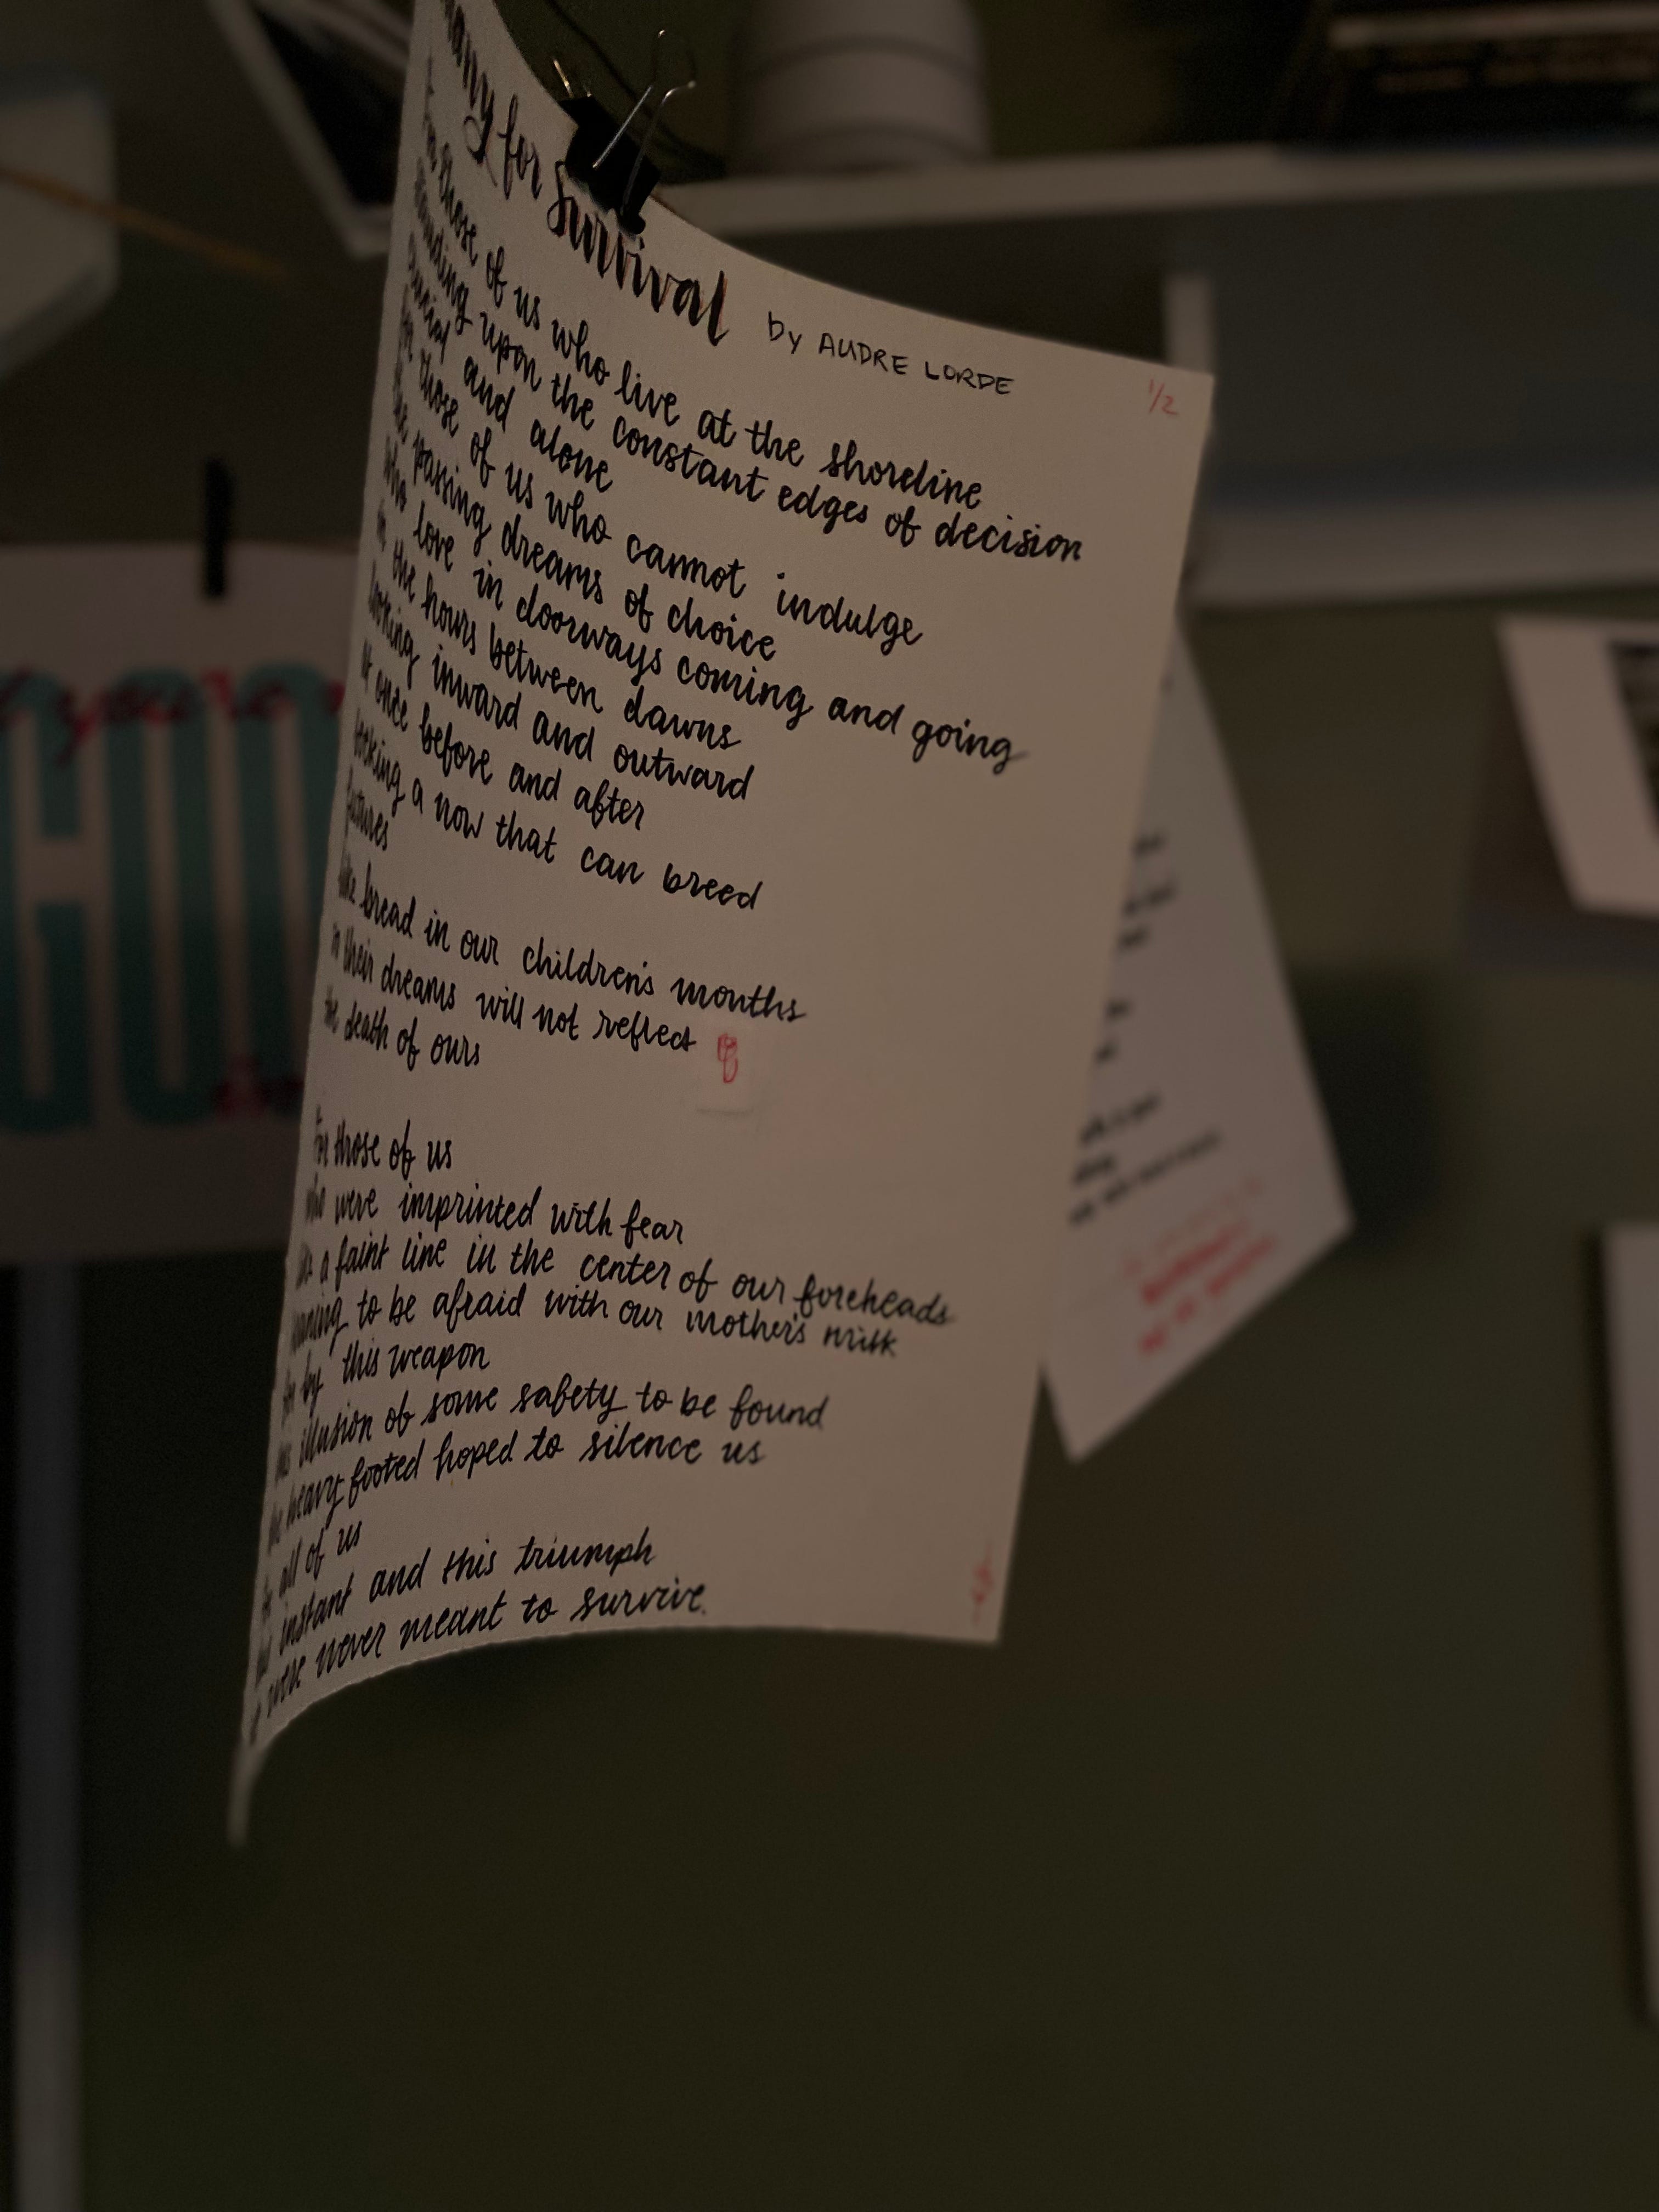 for Survival by AUDRE LORDE
1/2
For those of us who live at the shoreline
standing upon the constant edges of decision
crucial and alone
for those of us who cannot indulge
the passing dreams of choice
who love in doorways coming and going
in the hours between dawns
looking inward and outward
at once before and after
seeking a now that can breed
futures
like bread in our children's mouths
in their dreams will not reflect
the death of ours
For those of us
who were imprinted with fear
a faint line in the center of our foreheads
to be afraid with our mother's milk
by this weapon
illusion of some safety to be found
the heavy footed hoped to silence us
all of us
instant and this triumph
were never meant to survive.